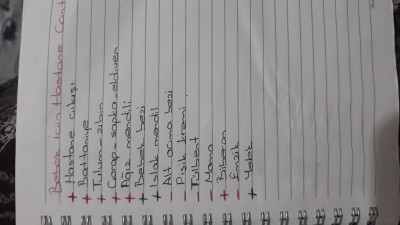 Bebek İçin Hastane Çant
+ Hastane çıkışı
+ Battaniye
+ Tulum - zıbın
+ Çorap - şapka - eldiven
+ Ağız mendili
+ Bebek bezi
+ Islak mendil
- Alt açma bezi
- Pişik kremi
- Tülbent
- Mama
+ Biberon
- Emzik
+ Yelek